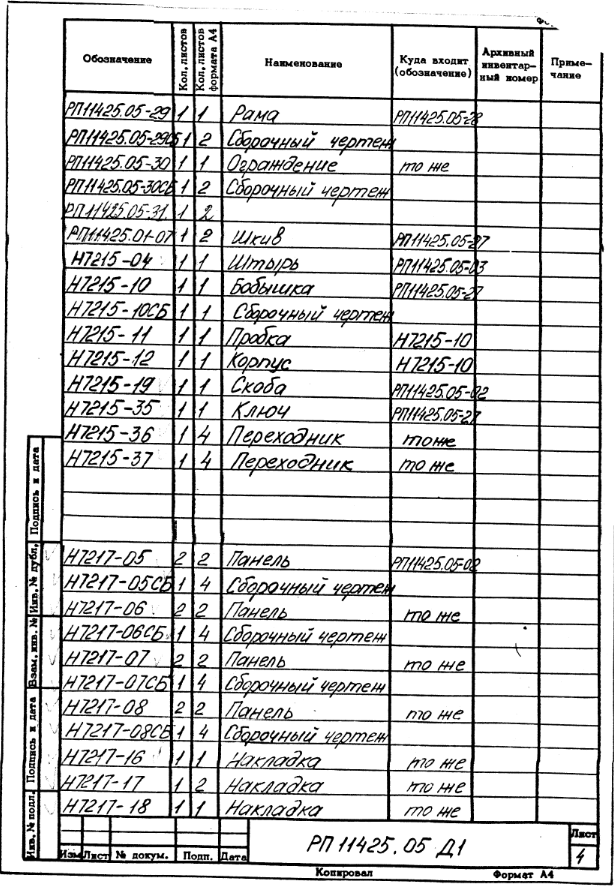 Обозначение Кол. листов Кол. листов формата А4 Наименование Куда входит (обозначение) Архивный инвентарный номер Примечание
РП11425.05-29 1 1 Рама РП11425.05-28
РП11425.05-29СБ 1 2 Сборочный чертеж
РП11425.05-30 1 1 Ограждение то же
РП11425.05-30СБ 1 2 Сборочный чертеж
РП11425.05-31 1 2
РП11425.01-07 1 2 Шкив РП11425.05-27
Н7215-04 1 1 Штырь РП11425.05-03
Н7215-10 1 1 Бобышка РП11425.05-27
Н7215-10СБ 1 1 Сборочный чертеж
Н7215-11 1 1 Пробка Н7215-10
Н7215-12 1 1 Корпус Н7215-10
Н7215-19 1 1 Скоба РП11425.05-02
Н7215-35 1 1 Ключ РП11425.05-27
Н7215-36 1 4 Переходник то же
Н7215-37 1 4 Переходник то же
Н7217-05 2 2 Панель РП11425.05-02
Н7217-05СБ 1 4 Сборочный чертеж
Н7217-06 2 2 Панель то же
Н7217-06СБ 1 4 Сборочный чертеж
Н7217-07 2 2 Панель то же
Н7217-07СБ 1 4 Сборочный чертеж
Н7217-08 2 2 Панель то же
Н7217-08СБ 1 4 Сборочный чертеж
Н7217-16 1 1 Накладка то же
Н7217-17 1 2 Накладка то же
Н7217-18 1 1 Накладка то же
Подпись и дата
Инв. № дубл.
Взам. инв. №
Подпись и дата
Инв. № подл.
Изм Лист № докум. Подп. Дата
РП 11425.05 Д1
Лист
4
Копировал Формат А4